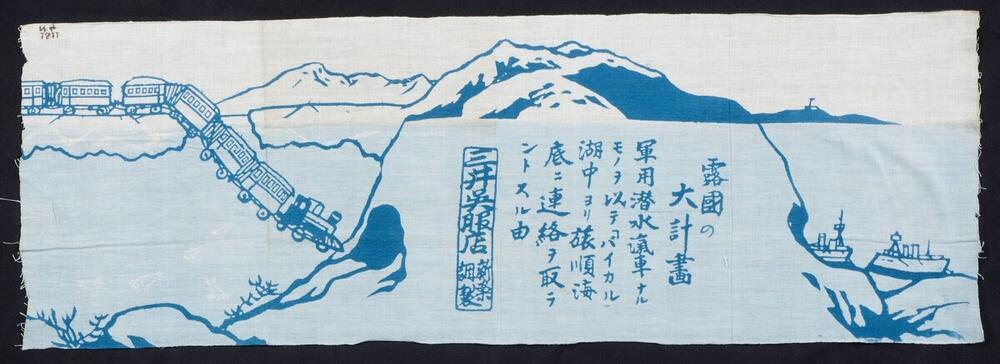 露國の
大計畫
軍用潜水滊車ナル
モノヲ以テ「バイカル」
湖中ヨリ旅順海
底ニ連絡ヲ取ラ
ントスル由
三井呉服店
新案
調製